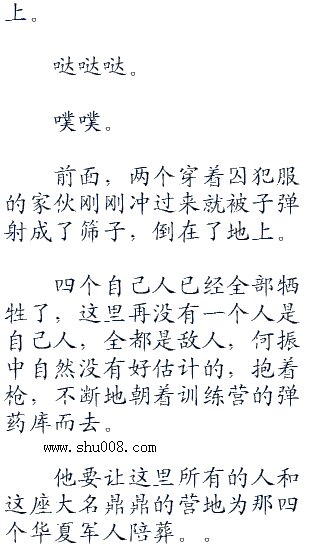 上。
哒哒哒。
噗噗。
前面，两个穿着囚犯服
的家伙刚刚冲过来就被子弹
射成了筛子，倒在了地上。
四个自己人已经全部牺
牲了，这里再没有一个人是
自己人，全都是敌人，何振
中自然没有好估计的，抱着
枪，不断地朝着训练营的弹
药库而去。
www.shu008.com
他要让这里所有的人和
这座大名鼎鼎的营地为那四
个华夏军人陪葬。。